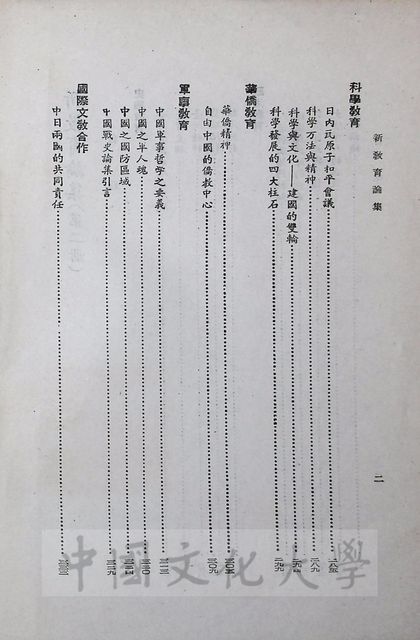 新教育論集
二
科學教育
日內瓦原子和平會議……二八五
科學方法與精神……二八九
科學與文化——建國的雙輪……二九四
科學發展的四大柱石……二九九
華僑教育
華僑精神……三〇五
自由中國的僑教中心……三〇九
軍事教育
中國軍事哲學之要義……三一三
中國之軍人魂……三二〇
中國之國防區域……三二四
中國戰史論集引言……三二九
國際文教合作
中日兩國的共同責任……三三三
中国文化大學